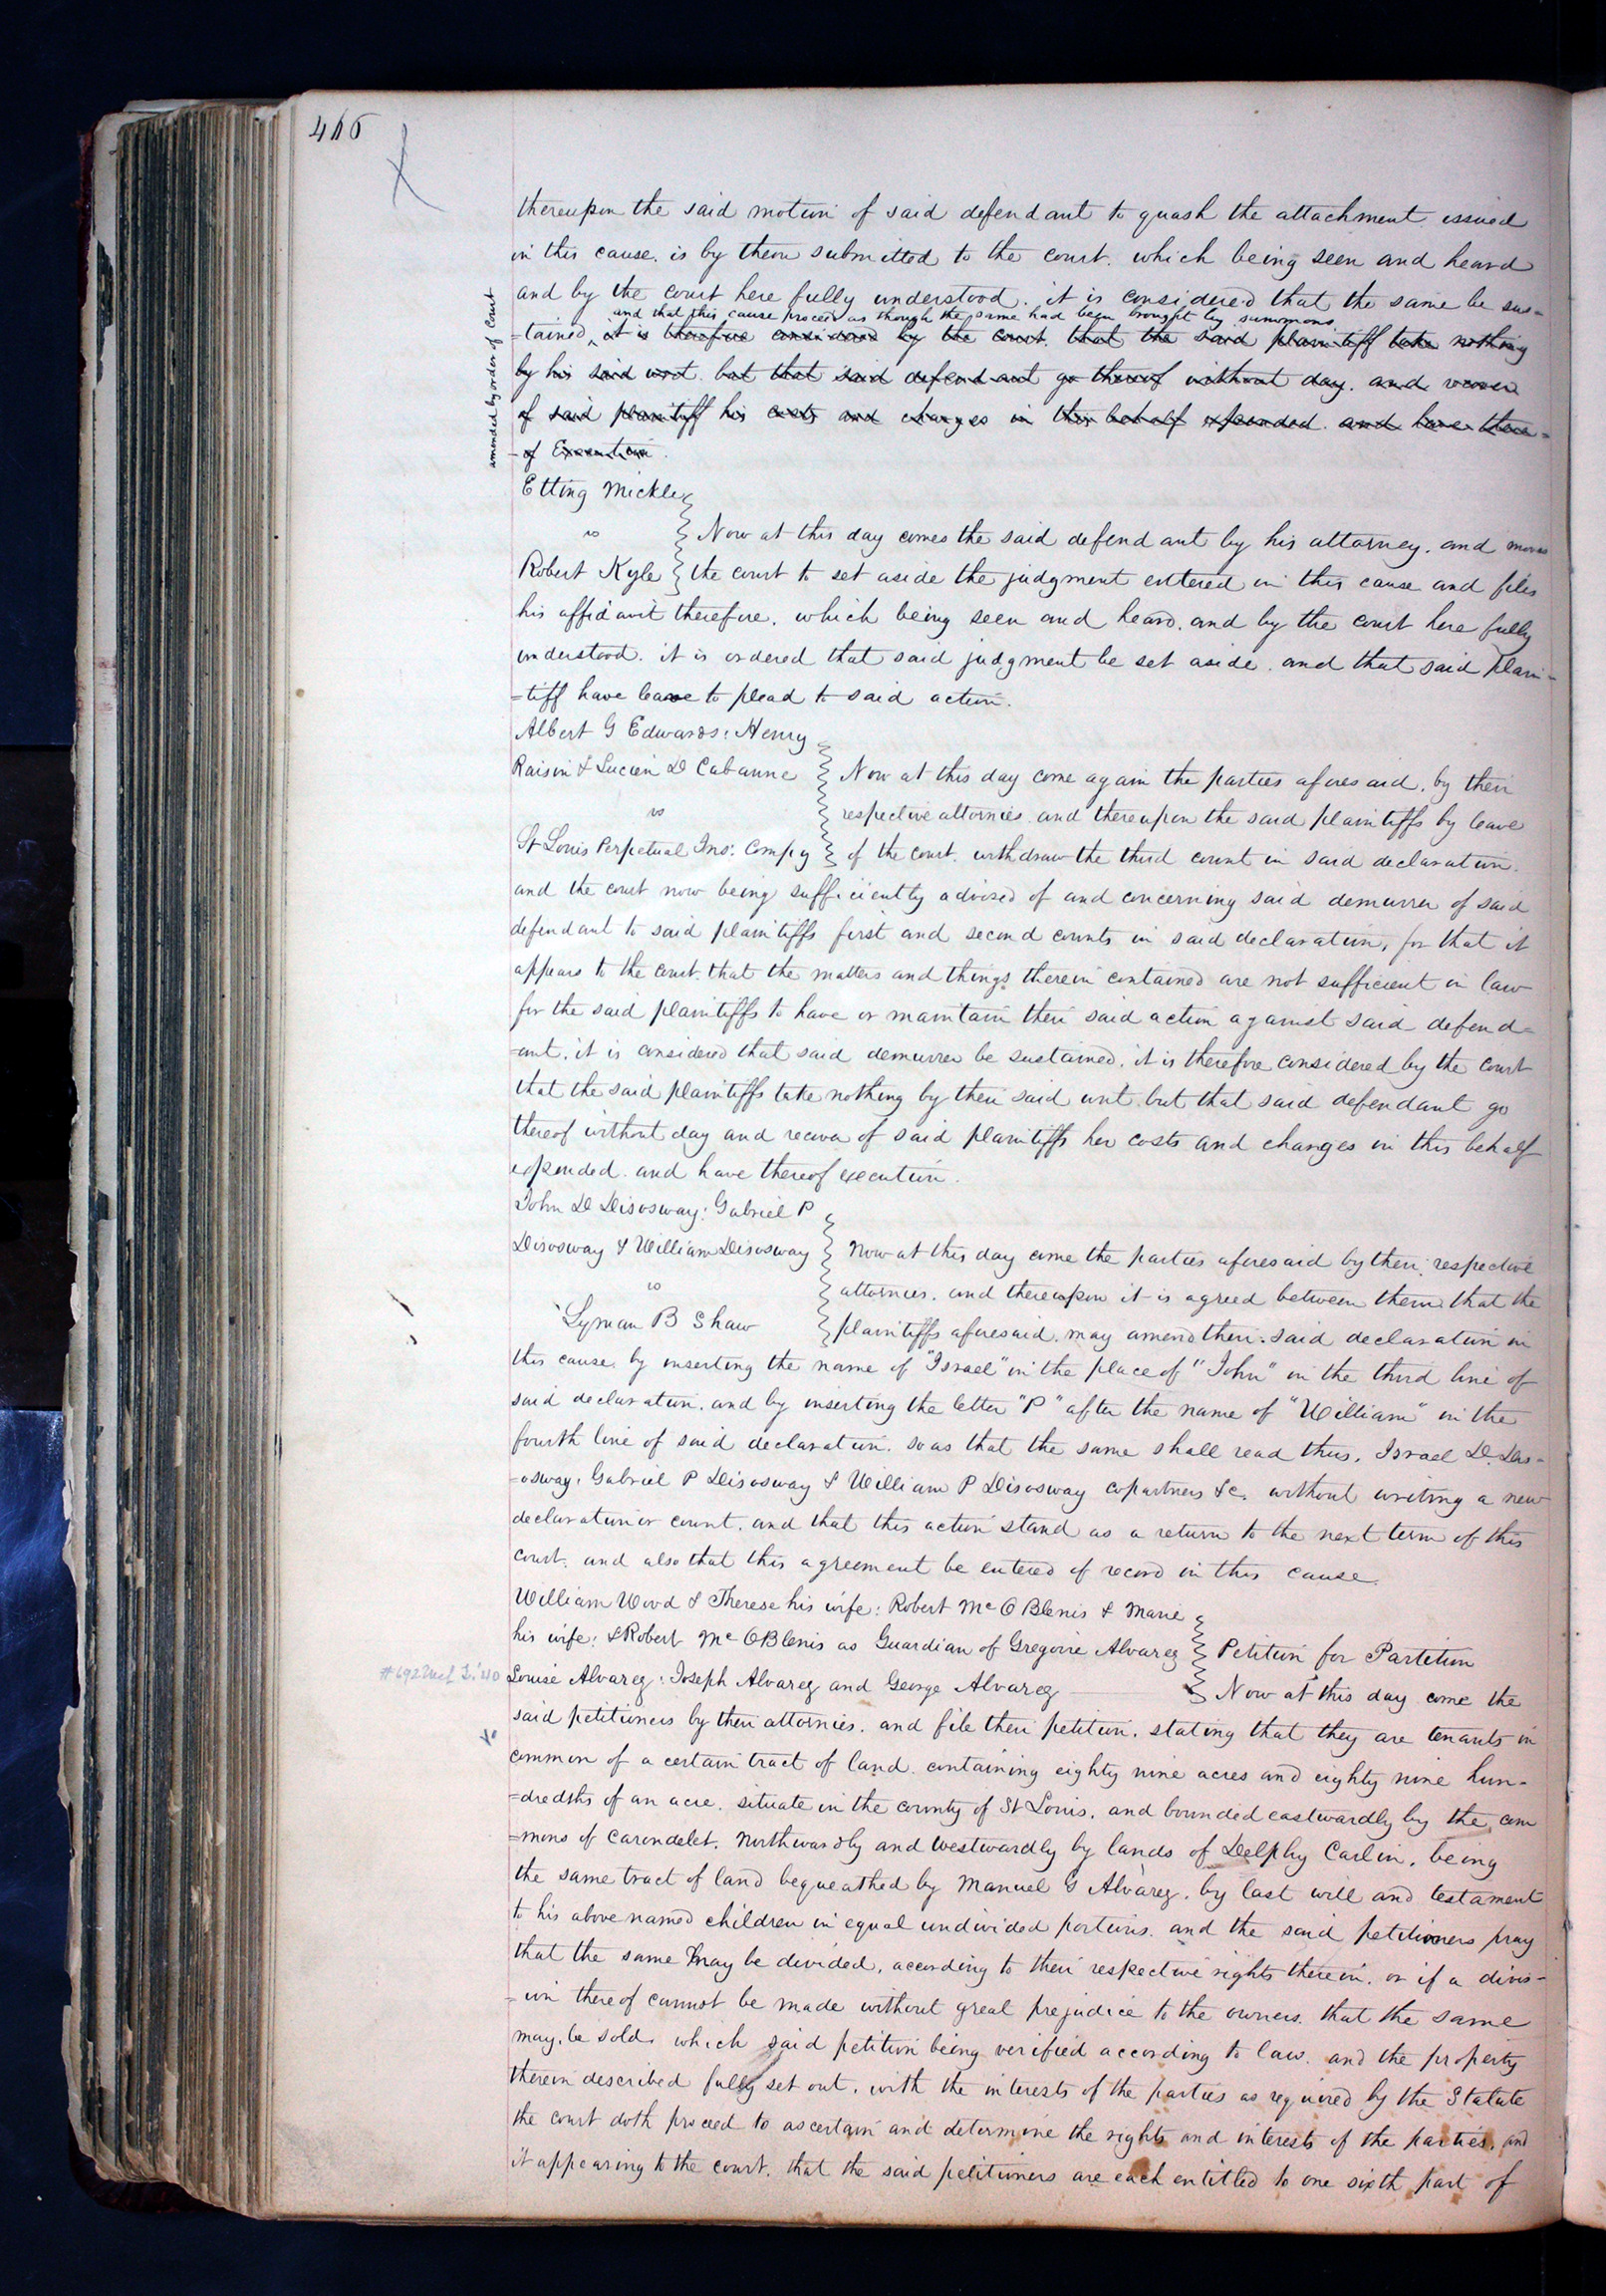 466
thereupon the said motion of said defendant to quash the attachment issued
in this cause. is by them submitted to the court. which being seen and heard
and by the court here fully understood. it is considered that the same be sus=
and that this cause proceed as though the same had been brought by summons
=tained, it is therefore considered by the court. that the said plaintiff take nothing
by his said writ. but that said defendant go thereof without day. and recover
of said plaintiff his costs and charges in this behalf expended. and have there=
=of Execution.
amended by order of Court
Etting Mickle
vs
Now at this day comes the said defendant by his attorney. and moves
Robert Kyle the court to set aside the judgment entered in this cause and files
his affidavit therefore. which being seen and heard. and by the court here fully
understood. it is ordered that said judgment be set aside. and that said plain=
=tiff have leave to plead to said action.
Albert G Edwards: Henry
Raisin & Lucien D Cabanne Now at this day come again the parties aforesaid. by their
vs respective attornies. and thereupon the said plaintiffs by leave
St Louis Perpetual Ins: Compy of the court. withdraw the third count in said declaration.
and the court now being sufficiently advised of and concerning said demurrer of said
defendant to said plaintiffs first and second counts in said declaration, for that it
appears to the court. that the matters and things therein contained are not sufficient in law
for the said plaintiffs to have or maintain their said action against said defend=
=ant. it is considered that said demurrer be sustained. it is therefore considered by the court
that the said plaintiffs take nothing by their said writ. but that said defendant go
thereof without day and recover of said plaintiffs her costs and charges in this behalf
expended. and have thereof execution.
John D Disosway: Gabriel P
Disosway & William Disosway Now at this day come the parties aforesaid by their respective
vs attornies. and thereupon it is agreed between them that the
Lyman B Shaw plaintiffs aforesaid. may amend their said declaration in
this cause. by inserting the name of "Israel" in the place of "John" in the third line of
said declaration. and by inserting the letter "P" after the name of "William" in the
fourth line of said declaration. so as that the same shall read thus. Israel D. Dis=
=osway. Gabriel P Disosway & William P Disosway copartners &c. without writing a new
declaration or count. and that this action stand as a return to the next term of this
court. and also that this agreement be entered of record in this cause.
William Wood & Therese his wife: Robert McOBlenis & Marie
his wife: & Robert McOBlenis as Guardian of Gregoire Alvarez Petition for Partition
Louise Alvarez: Joseph Alvarez and George Alvarez Now at this day come the
said petitioners by their attornies. and file their petition. stating that they are tenants in
common of a certain tract of land. containing eighty nine acres and eighty nine hun=
=dredths of an acre. situate in the county of St Louis. and bounded eastwardly by the com
=mons of Carondelet. Northwardly and Westwardly by lands of Delphy Carlin. being
the same tract of land bequeathed by Manuel G Alvarez. by last will and testament
to his above named children in equal undivided portions. and the said petitioners pray
that the same may be divided. according to their respective rights therein. or if a divis=
=ion thereof cannot be made without great prejudice to the owners. that the same
may be sold. which said petition being verified according to law. and the property
therein described fully set out. with the interests of the parties as required by the Statute
the court doth proceed to ascertain and determine the rights and interests of the parties. and
it appearing to the court. that the said petitioners are each entitled to one sixth part of